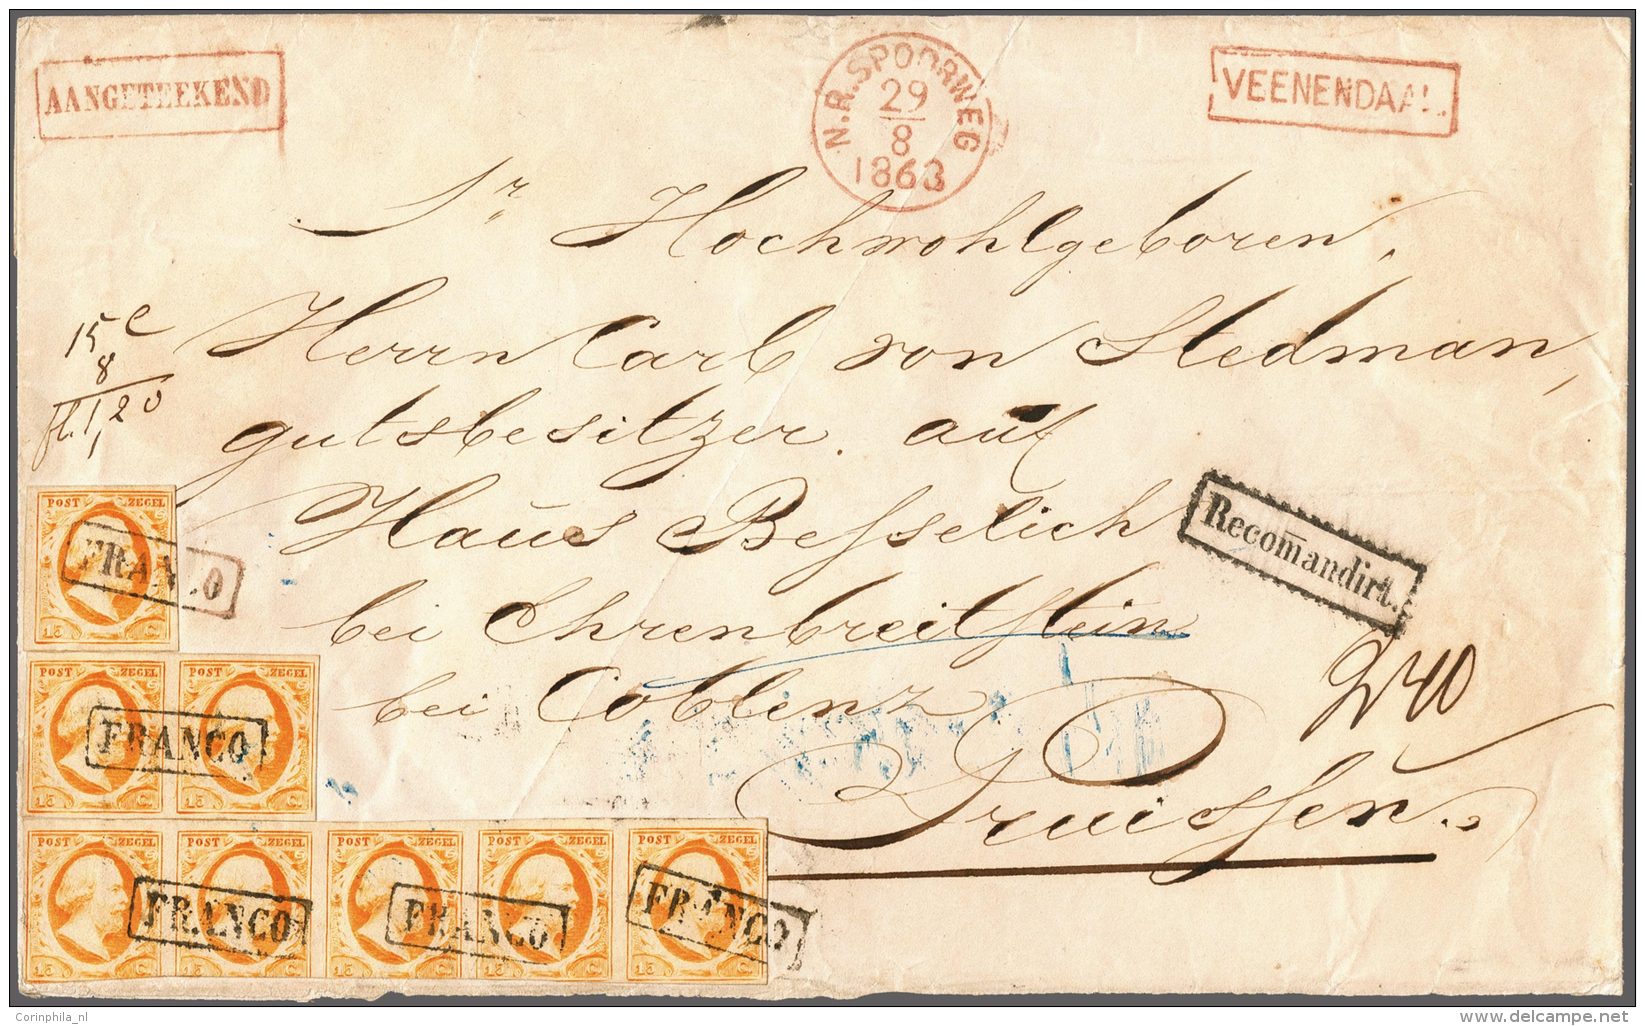 AANGETEEKEND
N.R. SPOORWEG
29
8
1863
VEENENDAAL.
Sr Hochwohlgeboren,
Herrn Carl von Stedman,
gutsbesitzer. auf
Haus Besselich
bei Ehrenbreitstein
bei Coblenz
Pruissen.
15 c
8
fl. 1,20
Recomandirt.
POST ZEGEL
15 C.
FRANCO
POST ZEGEL POST ZEGEL
15 C. 15 C.
FRANCO
POST ZEGEL POST ZEGEL POST ZEGEL POST ZEGEL POST ZEGEL
15 C. 15 C. 15 C. 15 C. 15 C.
FRANCO FRANCO FRANCO
Corinphila_nl
www.delcampe.net